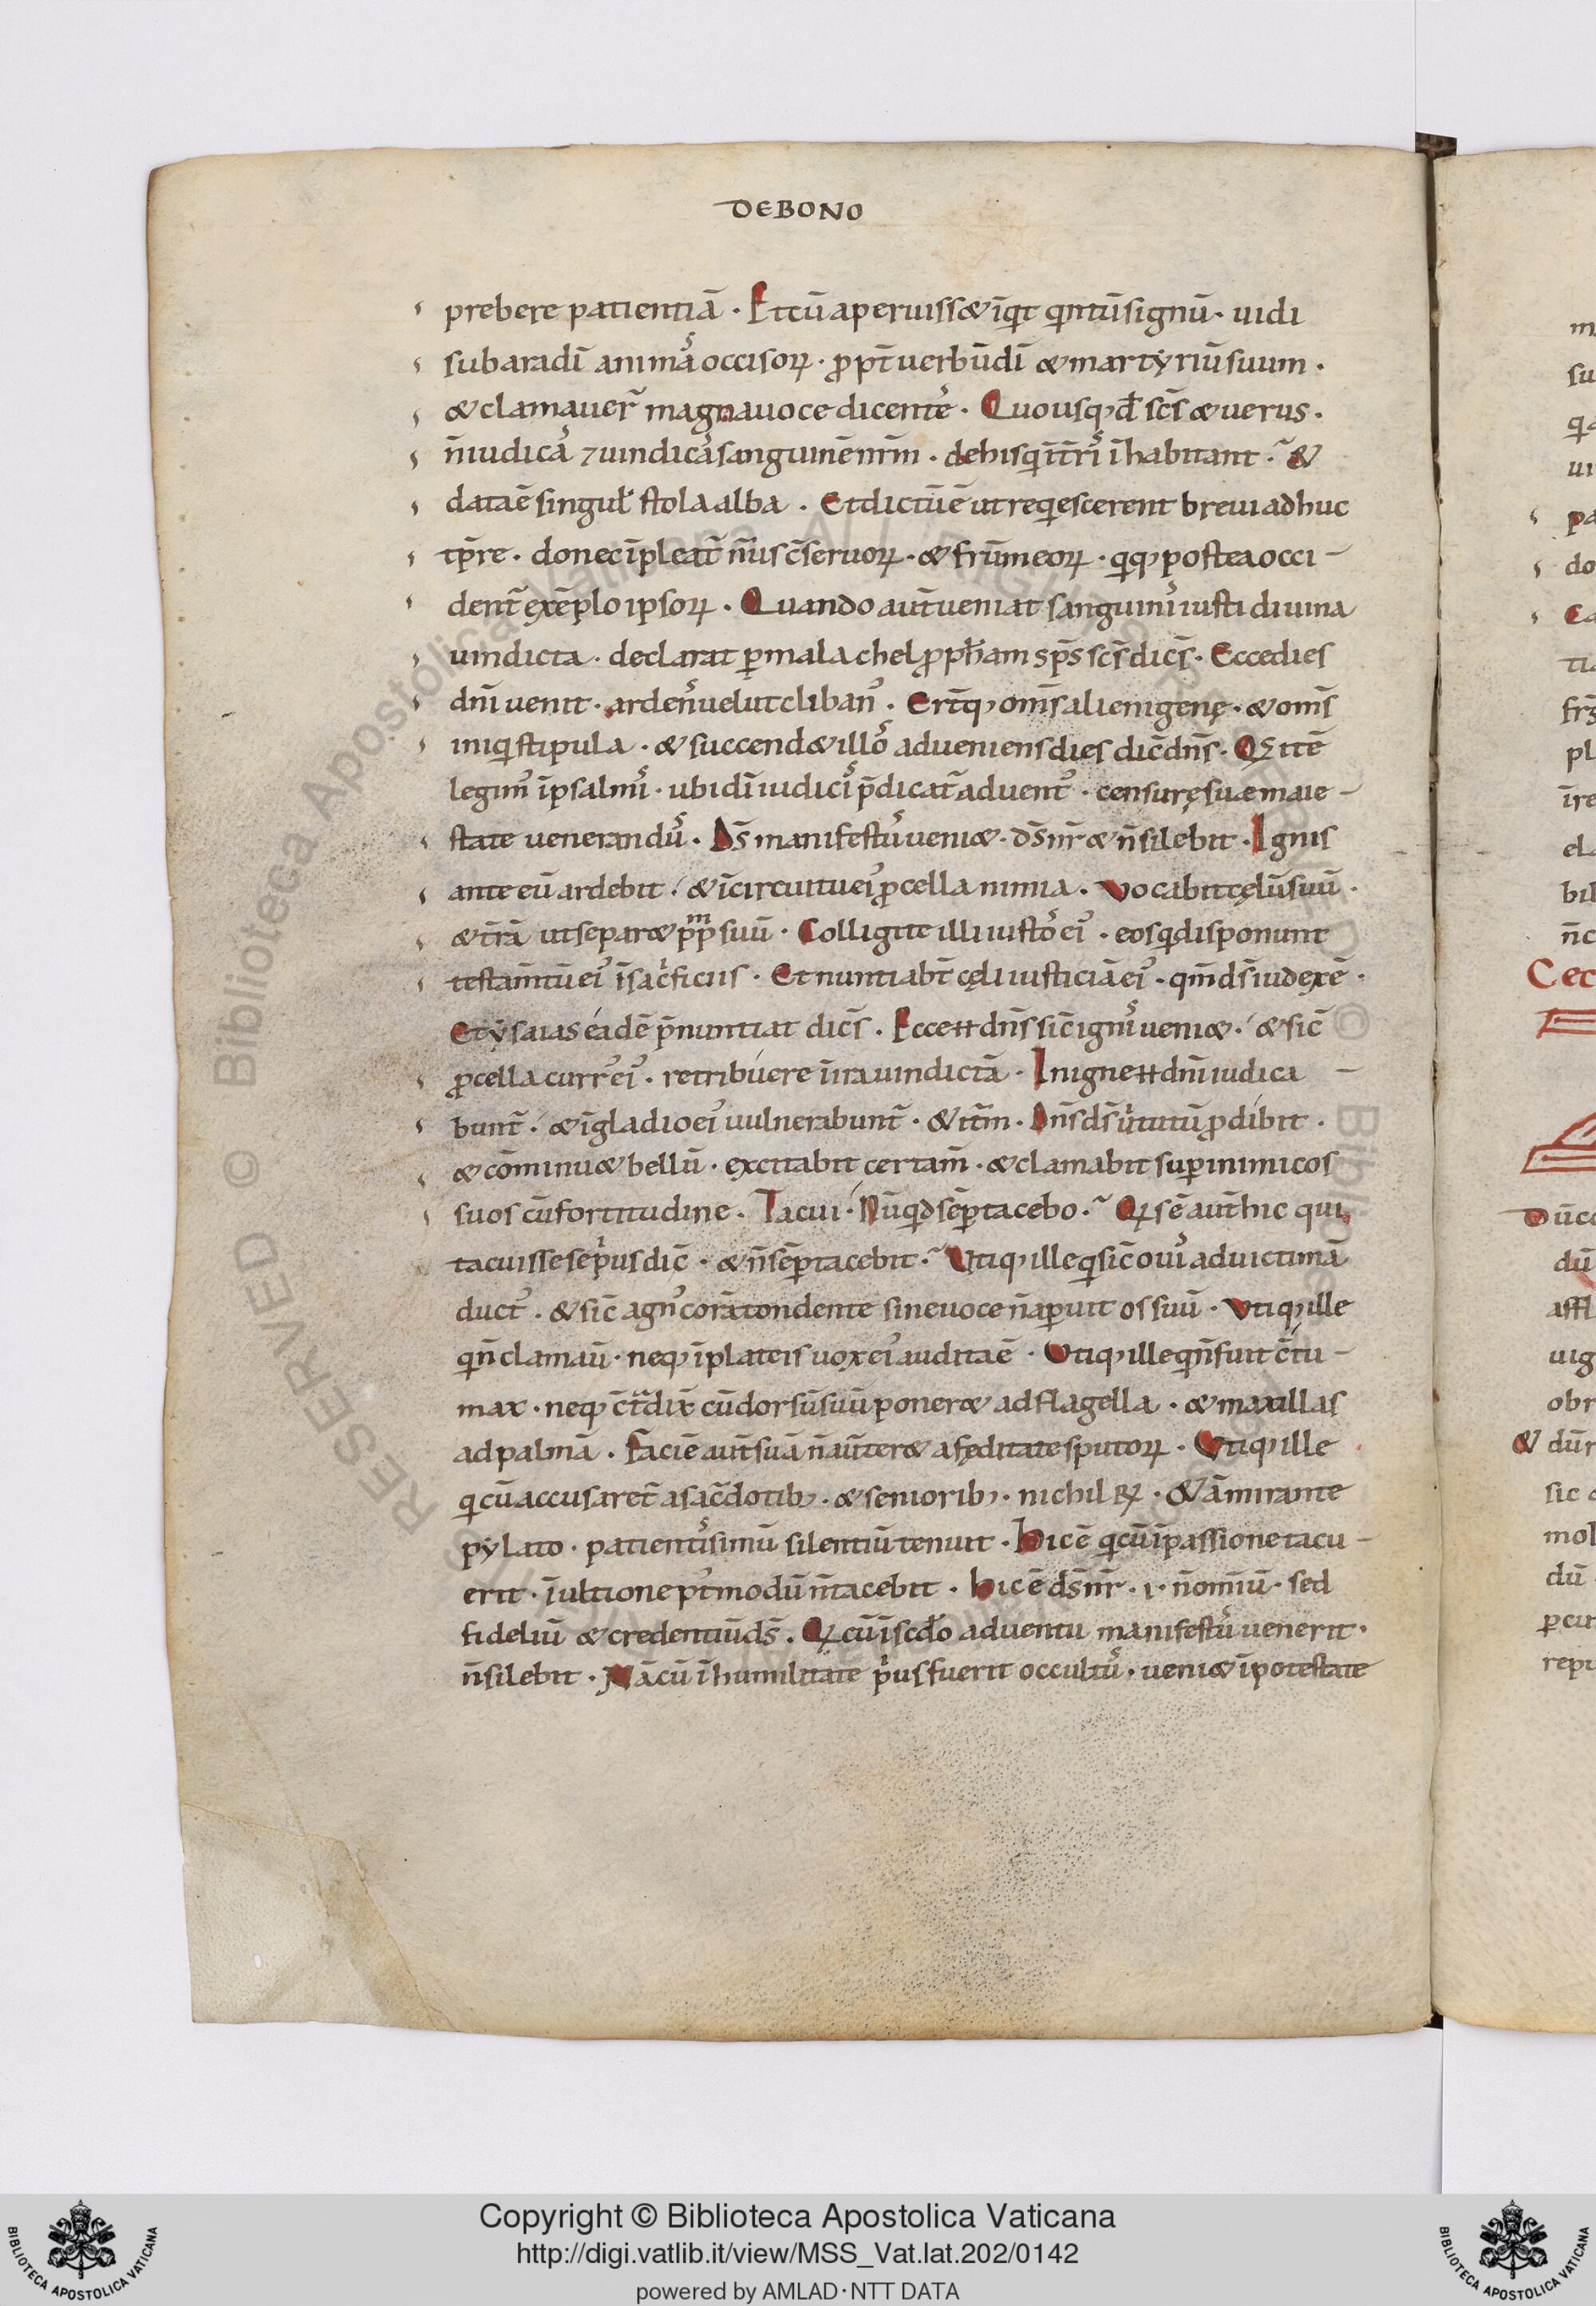 DE BONO
prebere patientiā · Et cū aperuisset īqt qintū signū · uidi
sub ara dī animas occisoꝝ · ꝓpt̄ uerbū dī & martyriū suum ·
& clamauer̄ magna uoce dicentes · Quousq; dn̄e sc̄s & uerus ·
n̄ iudicas ⁊ uindicas sanguinē nr̄m · de his qi ī tr̄ris īhabitant ·~ &
data ē singul̄ stola alba · Et dictū ē ut reqiescerent breui adhuc
tp̄re · donec īpleat̄ nūus c̄seruoꝝ · & frūm eoꝝ · qi q; postea occi-
dent̄ exēplo ipsoꝝ · Quando aut̄ ueniat sanguinis iusti diuina
uindicta · declarat ꝑ malachel ꝓph̄am sp̄s sc̄s dic̄s · Ecce dies
dn̄i uenit · ardens uelut clibanꝰ · Er̄tq; om̄s alienigenę · & om̄s
iniqi stipula · & succendet illos adueniens dies dic̄ dn̄s · Qd̄ itē
legimꝰ ī psalmis · ubi dī iudicis p̄dicat̄ aduentꝰ · censurę suæ maie-
state uenerandus · Ds̄ manifestus ueniet · ds̄ nr̄ & n̄ silebit · Ignis
ante eū ardebit · & ī circuitu eiꝰ ꝓcella nimia · Vocabit cęlū suū ·
& tr̄ā ut separet pp̄m suū · Colligite illi iustos eiꝰ · eos qi disponunt
testam̄tū eiꝰ ī sacficiis · Et nuntiabt̄ cęli iusticiā eiꝰ · qm̄ ds̄ iudex ē ·
Et ysaias eadē p̄nuntiat dic̄s · Ecce .n. dn̄s sic̄ ignis ueniet · & sic̄
ꝓcella currꝰ eiꝰ · retribuere ī ira uindictā · In igne .n. dn̄i iudica -
bunt̄ · & ī gladio eiꝰ uulnerabunt̄ · & itm̄ · Dn̄s ds̄ uirtutū ꝓdibit ·
& cōminuet bellū · excitabit certam̄ · & clamabit suꝑ inimicos
suos cū fortitudine · Tacui · Nūqid sēꝑ tacebo ·~ Qis ē aut̄ hic qui
tacuisse se prius dic̄ · & n̄ sēꝑ tacebit ·~ Vtiq; ille qi sic̄ ouis ad uictimā
ductꝰ · & sic̄ agnꝰ corā tondente sine uoce n̄ aꝑuit os suū · Vtiq; ille
qi n̄ clamauit · neq; ī plateis uox eiꝰ audita ē · Vtiq; ille qi n̄ fuit c̄tu-
max · neq; c̄tradix̄ cū dorsū suū poneret ad flagella · & maxillas
ad palmas · Faciē aut̄ suā n̄ auerteret a fęditate sputoꝝ · Vtiq; ille
qi cū accusaret̄ a sac̄dotib; · & seniorib; · nichil R̄ · & āmirante
pylato · patientissimū silentiū tenuit · Hic ē qi cū ī passione tacu-
erit · ī ultione ptꝰmodū n̄ tacebit · Hic ē ds̄ nr̄ · i · n̄ omīū · sed
fideliū & credentiū ds̄ · Qi cū ī scdo aduentu manifestus uenerit ·
n̄ silebit · Nā cū ī humilitate prius fuerit occultus · ueniet ī potestate
Copyright © Biblioteca Apostolica Vaticana
http://digi.vatlib.it/view/MSS_Vat.lat.202/0142
powered by AMLAD·NTT DATA